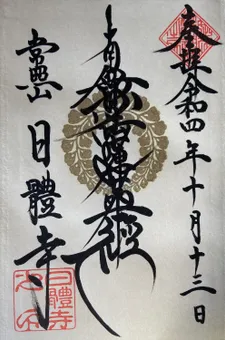 奉拝令和四年十月十三日
南無妙法蓮華経
常照山
日體寺
日體寺